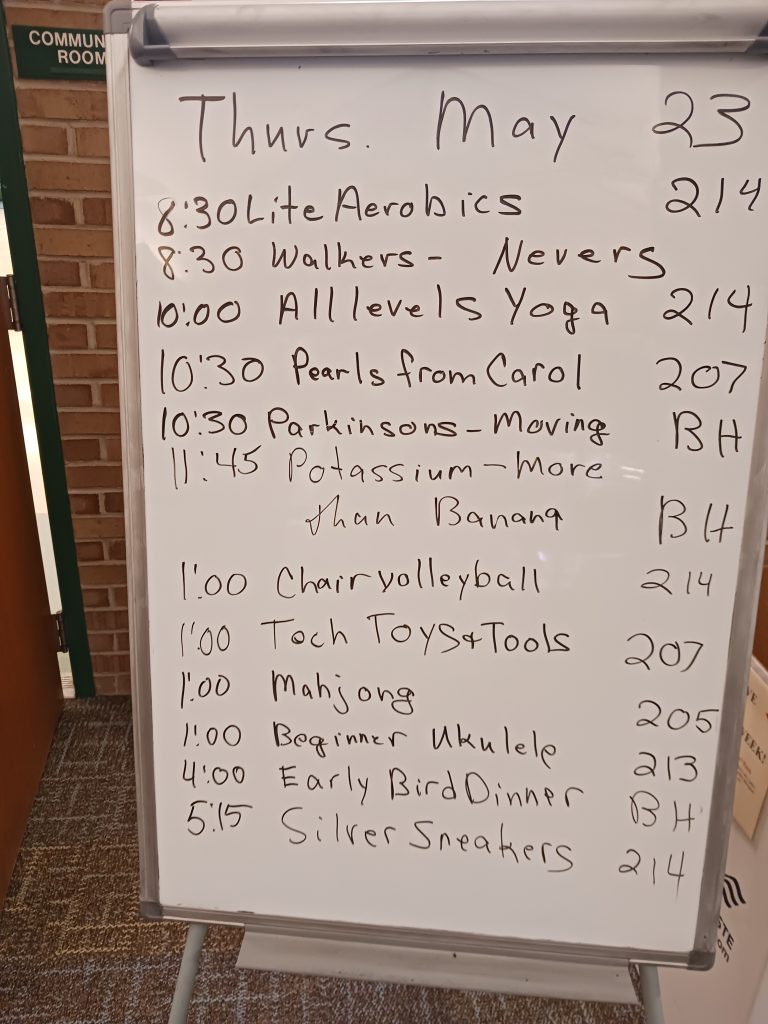 COMMUN
ROOM
Thurs. May 23
8:30 Lite Aerobics 214
8:30 Walkers - Nevers
10:00 All levels Yoga 214
10:30 Pearls from Carol 207
10:30 Parkinsons - Moving BH
11:45 Potassium - More
than Banana BH
1:00 Chair volleyball 214
1:00 Tech Toys & Tools 207
1:00 Mahjong 205
1:00 Beginner Ukulele 213
4:00 Early Bird Dinner BH
5:15 Silver Sneakers 214
VE
EEK!
STE
om